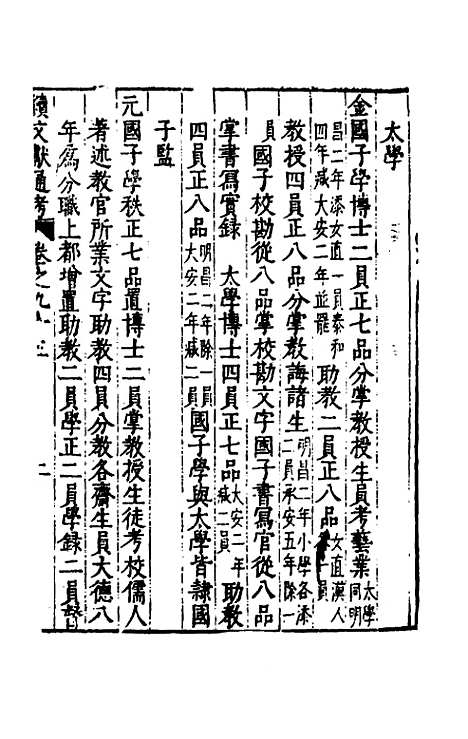 太學
金國子學博士二員正七品分掌教授生員考藝業太學同明
昌二年添女直一員泰和四年减大安二年並罷助教二員正八品女直漢人一員
教授四員正八品分掌教誨諸生明昌二年小學各添二員承安五年除一
員國子校勘從八品掌校勘文字國子書寫官從八品
掌書寫實録 太學博士四員正七品大安二年减二員助教
四員正八品明昌二年除一員大安二年减二員國子學與太學皆隸國
子監
元國子學秩正七品置博士二員掌教授生徒考校儒人
著述教官所業文字助教四員分教各齋生員大德八
年爲分職上都增置助教二員學正二員學録二員督
續文獻通考 卷之九十三 二